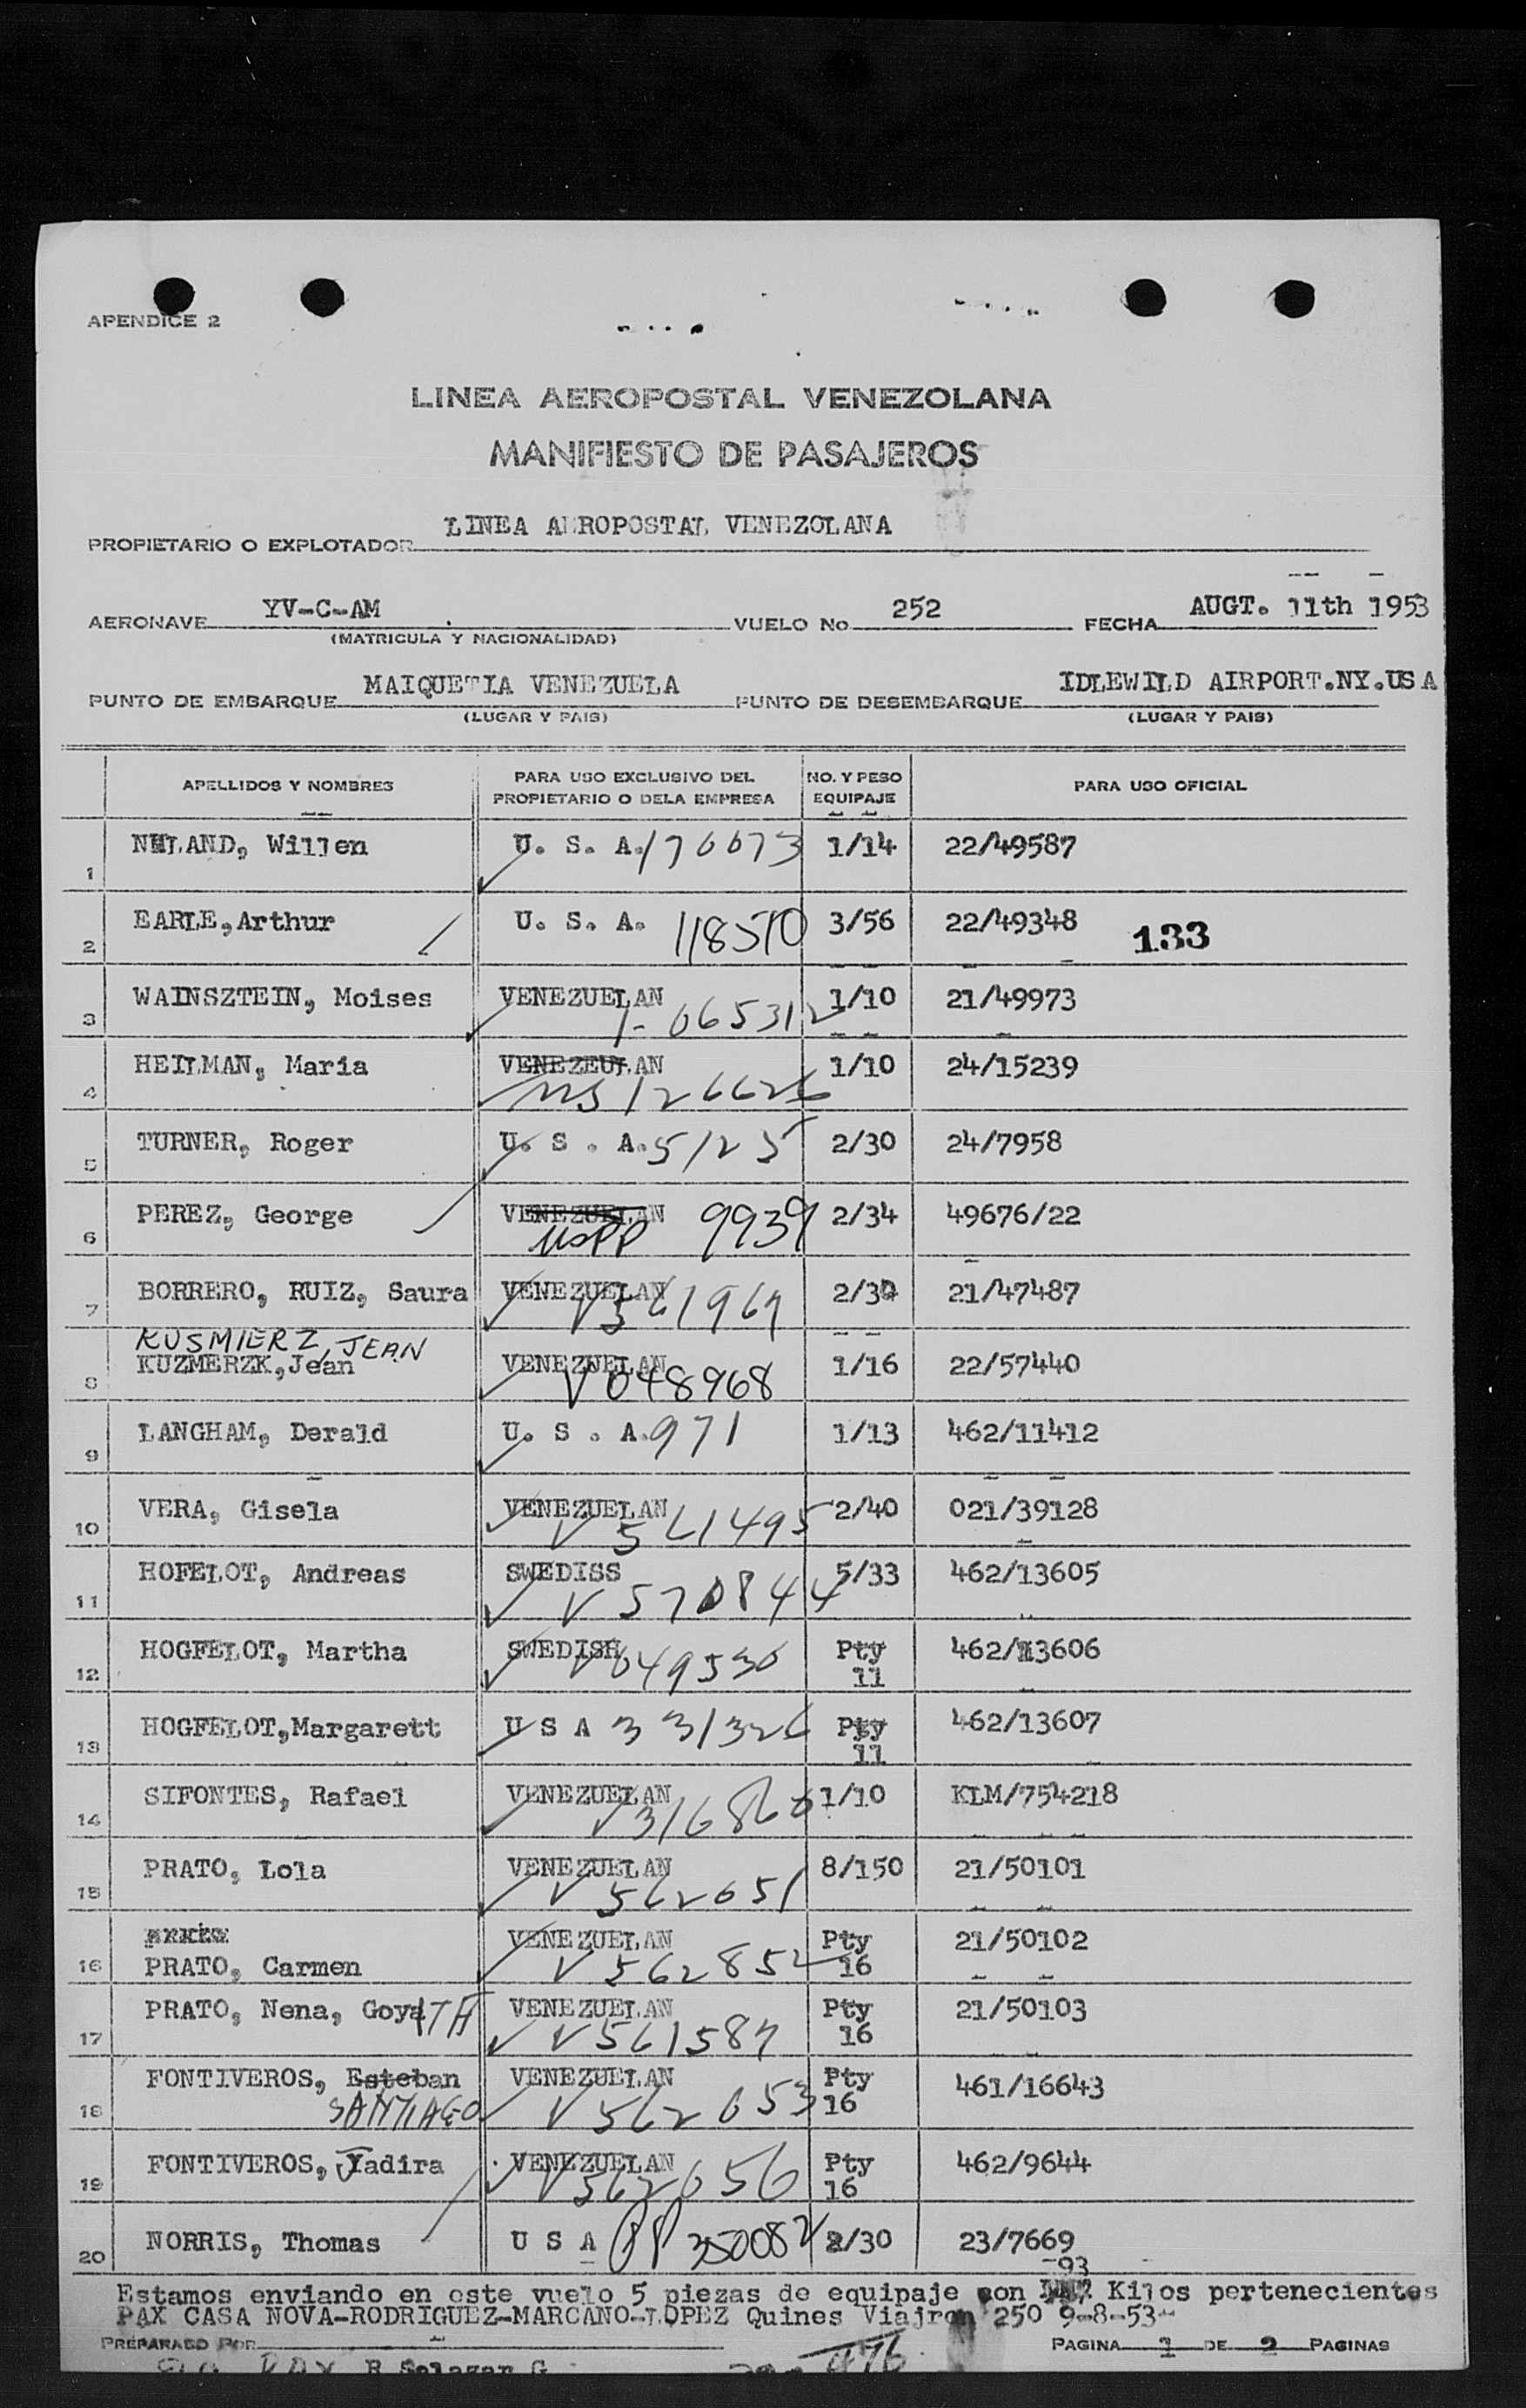 APENDICE 2
LINEA AEROPOSTAL VENEZOLANA
MANIFIESTO DE PASAJEROS
PROPIETARIO O EXPLOTADOR LINEA AEROPOSTAL VENEZOLANA
AERONAVE YV-C-AM VUELO No 252 FECHA AUGT. 11th 1953
(MATRICULA Y NACIONALIDAD)
PUNTO DE EMBARQUE MAIQUETIA VENEZUELA PUNTO DE DESEMBARQUE IDLEWILD AIRPORT.NY.USA
(LUGAR Y PAIS) (LUGAR Y PAIS)
APELLIDOS Y NOMBRES PARA USO EXCLUSIVO DEL PROPIETARIO O DE LA EMPRESA NO. Y PESO EQUIPAJE PARA USO OFICIAL
1 Willen U. S. A. 1/14 22/49587
2 EARLE,Arthur U. S. A. 118510 3/56 22/49348 133
3 WAINSZTEIN, Moises VENEZUELAN 1/10 21/49973
1-065312
4 HEILMAN, Maria VENEZEULAN 1/10 24/15239
126626
5 TURNER, Roger U. S . A. 5125 2/30 24/7958
6 PEREZ, George VENEZUELAN 9939 2/34 49676/22
USPP
7 BORRERO, RUIZ, Saura VENEZUELAN 21/47487
V561969
KUSMIERZ, JEAN
8 KUZMERZK,Jean VENEZUELAN 1/16 22/57440
V048968
9 LANGHAM, Derald U. S . A. 971 1/13 462/11412
10 VERA, Gisela VENEZUELAN 2/40 021/39128
V561495
11 HOFELOT, Andreas SWEDISS 5/33 462/13605
V570844
12 HOGFELOT, Martha SWEDISH V049530 Pty 11 462/13606
13 HOGFELOT,Margarett U S A 331326 Pty 11 462/13607
14 SIFONTES, Rafael VENEZUELAN 1/10 KLM/754218
15 PRATO, Lola VENEZUELAN 8/150 21/50101
V562651
16 PRATO, Carmen VENEZUELAN Pty 16 21/50102
V562852
17 PRATO, Nena, Goya VENEZUELAN Pty 16 21/50103
V561587
18 FONTIVEROS, Esteban VENEZUELAN Pty 16 461/16643
SANTIAGO V562653
19 FONTIVEROS, Yadira VENEZUELAN Pty 16 462/9644
V562656
20 NORRIS, Thomas U S A PP 350082 2/30 23/7669
93
Estamos enviando en este vuelo 5 piezas de equipaje con Kilos pertenecientes
PAX CASA NOVA-RODRIGUEZ-MARCANO-LOPEZ Quines Viajron 250 9-8-53-
PREPARADO POR PAGINA 1 DE 2 PAGINAS
PAX R Salazar G. 476